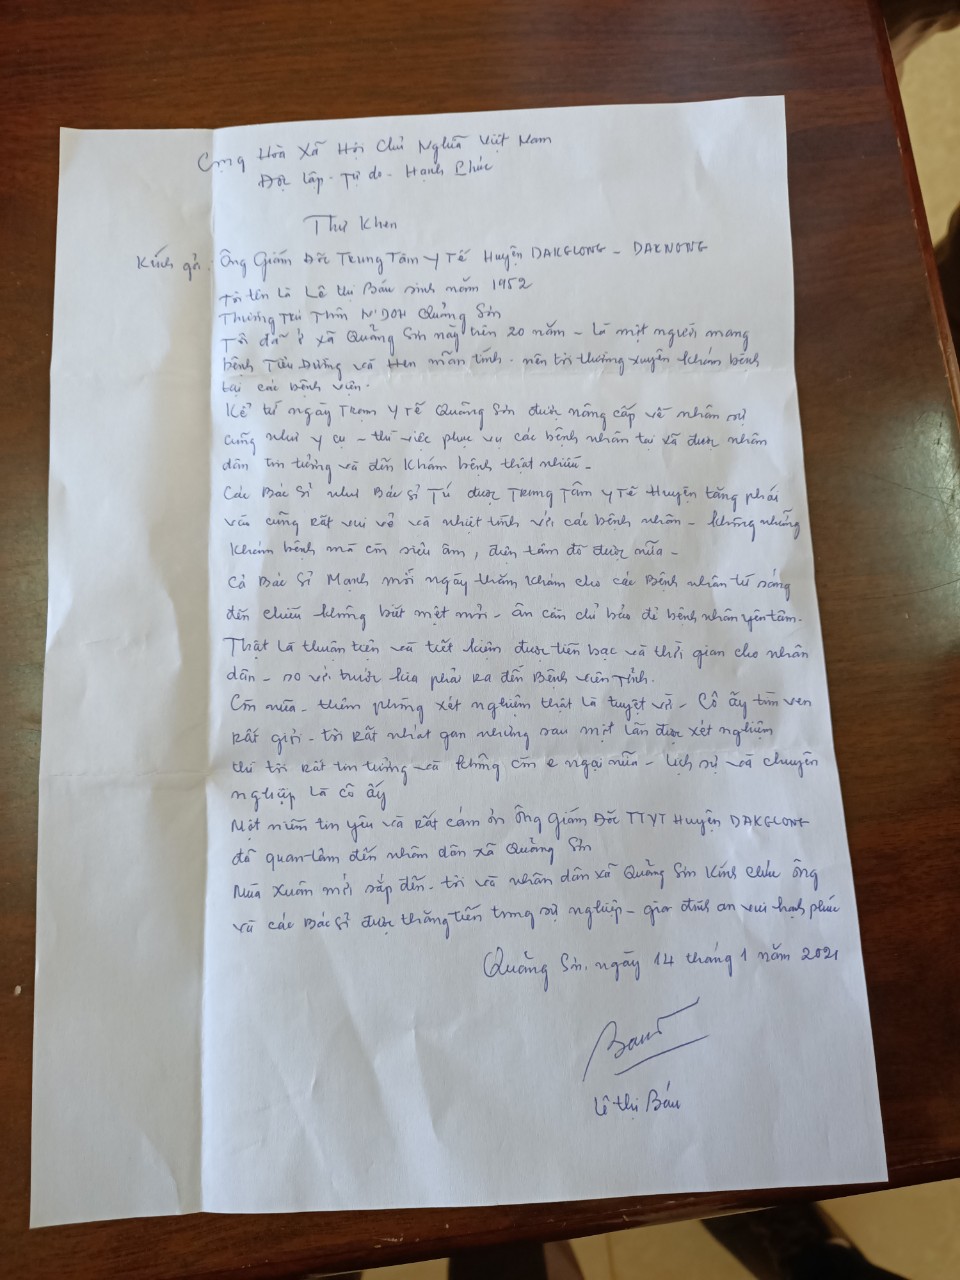 Cộng Hòa Xã Hội Chủ Nghĩa Việt Nam
Độc lập - Tự do - Hạnh Phúc
Thư Khen
Kính gởi: Ông Giám Đốc Trung Tâm Y Tế Huyện DAKGLONG - DAKNONG
Tôi tên là Lê thị Báu sinh năm 1952
Thường Trú Thôn N'DOH Quảng Sơn
Tôi đã ở xã Quảng Sơn này trên 20 năm - là một người mang
bệnh Tiểu Đường và Hen mãn tính. nên tôi thường xuyên khám bệnh
tại các bệnh viện.
Kể từ ngày Trạm Y Tế Quảng Sơn được nâng cấp về nhân sự
cũng như y cụ - thì việc phục vụ các bệnh nhân tại xã được nhân
dân tin tưởng và đến khám bệnh thật nhiều -
Các Bác Sĩ như Bác Sĩ Tú được Trung Tâm Y Tế Huyện tăng phái
vào cũng rất vui vẻ và nhiệt tình với các bệnh nhân - không những
khám bệnh mà còn siêu âm, điện tâm đồ được nữa -
Cả Bác Sĩ Mạnh mỗi ngày thăm khám cho các Bệnh nhân từ sáng
đến chiều không biết mệt mỏi - ân cần chỉ bảo để bệnh nhân yên tâm.
Thật là thuận tiện và tiết kiệm được tiền bạc và thời gian cho nhân
dân - so với trước kia phải ra đến Bệnh viện Tỉnh.
Còn nữa - thêm phòng xét nghiệm thật là tuyệt vời - Cô ấy tìm ven
rất giỏi - tôi rất nhát gan nhưng sau một lần được xét nghiệm
thì tôi rất tin tưởng và không còn e ngại nữa - lịch sự và chuyên
nghiệp là cô ấy
Một niềm tin yêu và rất cám ơn Ông Giám Đốc TTYT Huyện DAKGLONG
đã quan tâm đến nhân dân xã Quảng Sơn
Mùa xuân mới sắp đến - tôi và nhân dân xã Quảng Sơn kính chúc ông
và các Bác Sĩ được thăng tiến trong sự nghiệp - gia đình an vui hạnh phúc
Quảng Sơn. ngày 14 tháng 1 năm 2021
Báu
Lê thị Báu